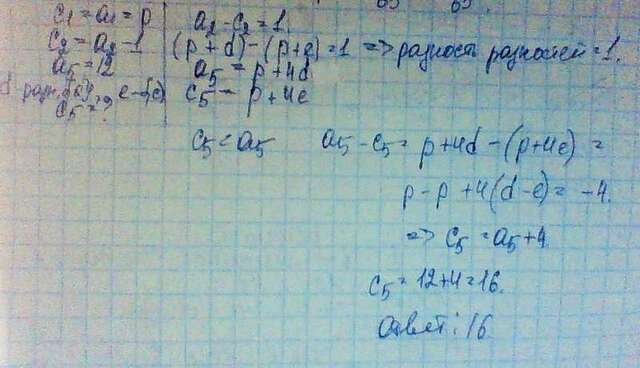 c₁ = a₁ = p
c₂ = a₂ - 1
a₅ = 12
c₅ = ?
a₂ - c₂ = 1
(p + d) - (p + e) = 1 => разность разностей = 1.
a₅ = p + 4d
c₅ - p + 4e
c₅ < a₅ a₅ - c₅ = p + 4d - (p + 4e) =
p - p + 4(d - e) = -4.
=> c₅ = a₅ + 4
c₅ = 12 + 4 = 16.
Ответ: 16